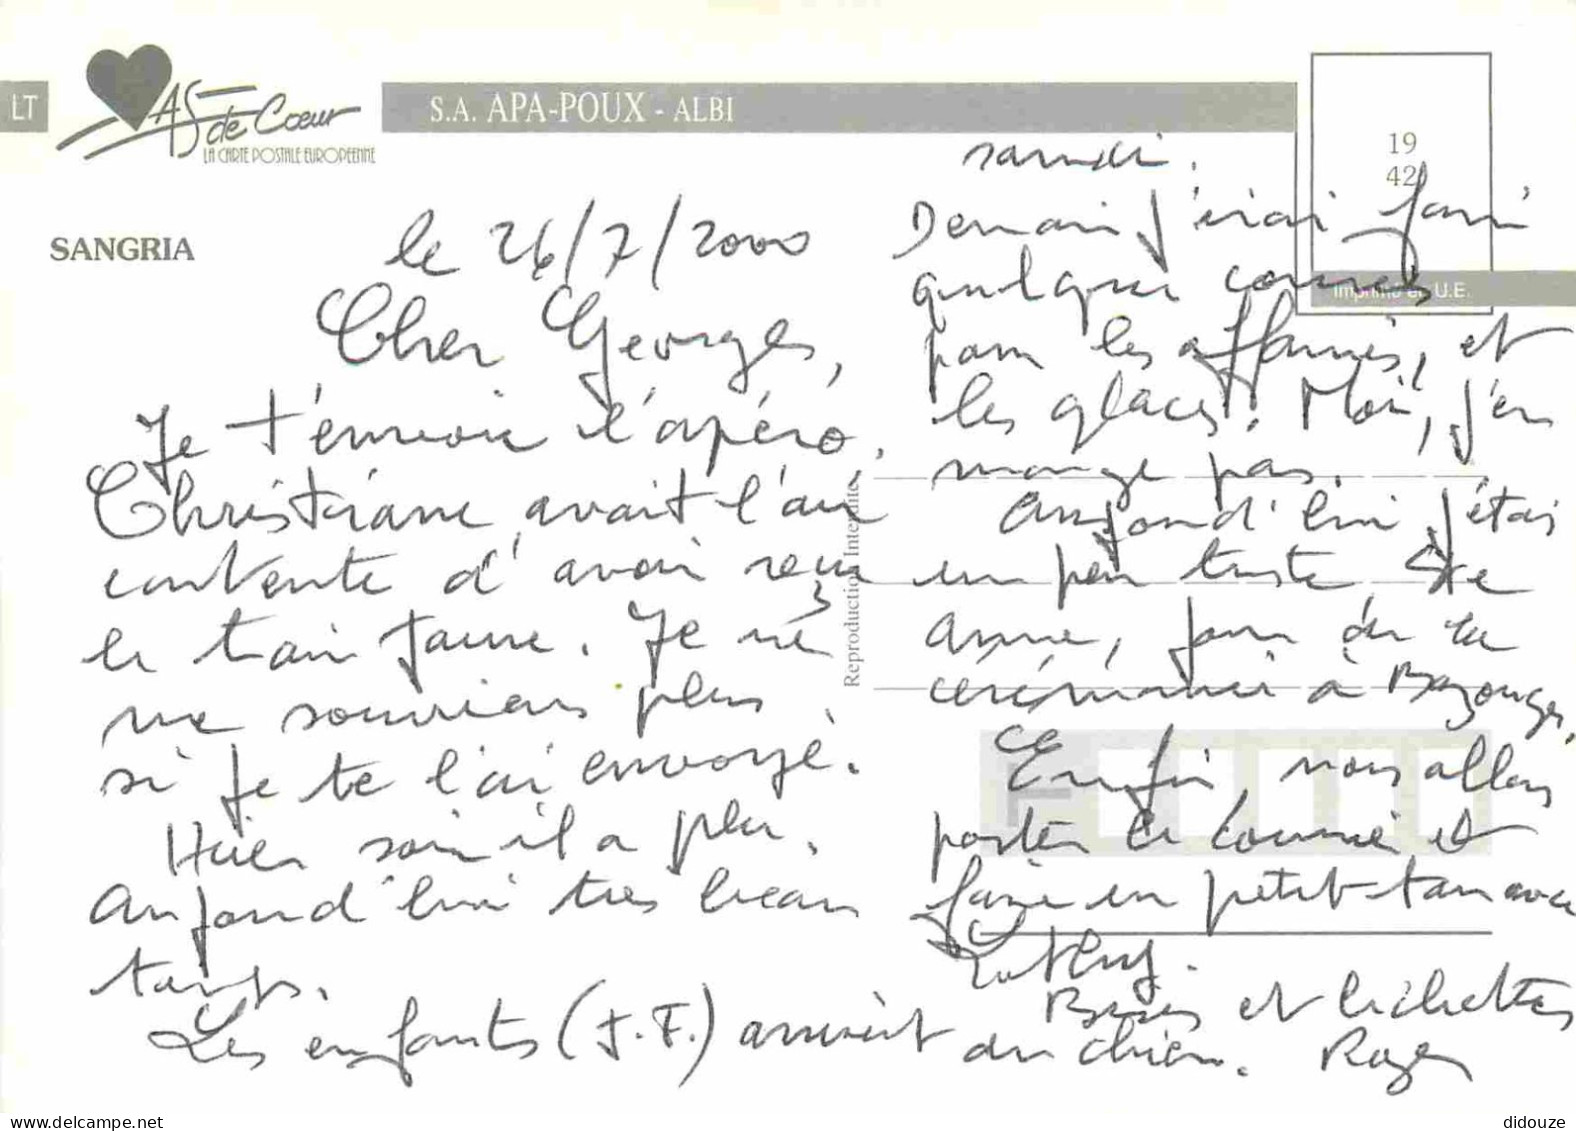 LT
AS de Cœur
LA CARTE POSTALE EUROPEENNE
S.A. APA-POUX - ALBI
19
42
Imprimé en U.E.
SANGRIA
Reproduction Interdite
le 26/7/2000
Cher Georges,
Je t'envoie l'apéro.
Christiane avait l'air
contente d'avoir reçu
le train jaune. Je ne
me souviens plus
si je te l'ai envoyé.
Hier soir il a plu.
Aujourd'hui très beau
temps.
Les enfants (J.F.) arrivent
samedi.
Demain j'irai faire
quelques courses
pour les affamés, et
les glaces. Moi, j'en
mange pas.
Aujourd'hui j'étais
un peu triste Ste
Anne, jour de la
cérémonie à Bazouges.
Enfin, nous allons
porter le courrier et
faire un petit tour avec
Bises et lichettes
du chien. Roger
didouze